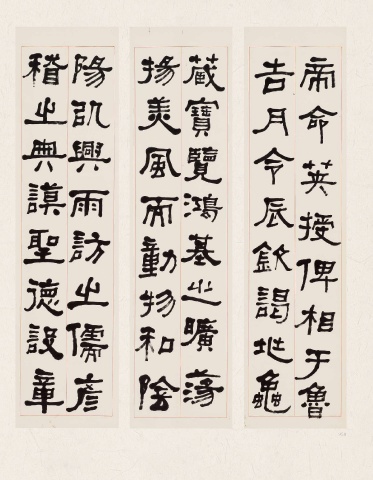 帝命英授俾相于魯
吉月令辰欽謁地龜
藏寶覽鴻基之曠蕩
揚美風而動物和陰
陽以興雨訪之儒彦
稽之典謨聖德設章